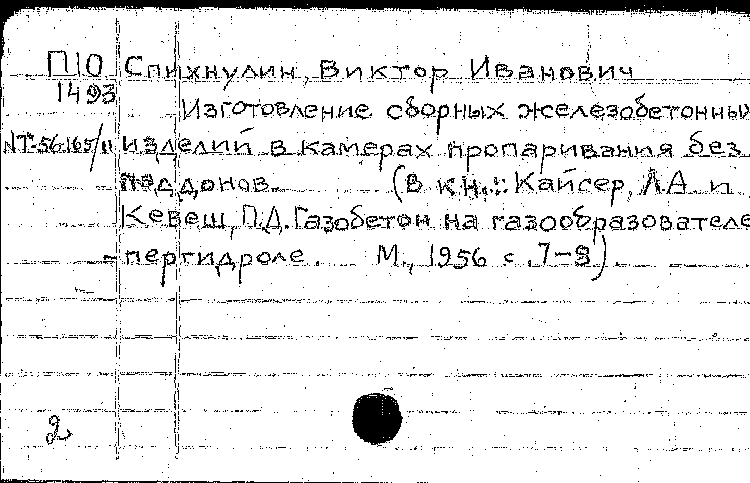 П10 Спихнулин, Виктор Иванович
1493
Изготовление сборных железобетонных
NT-56-165/11 изделий в камерах пропаривания без
поддонов. (В кн.: Кайсер, Л.А и
Кевеш, П.Д. Газобетон на газообразователе
- пергидроле. М., 1956 с. 7-8).
2